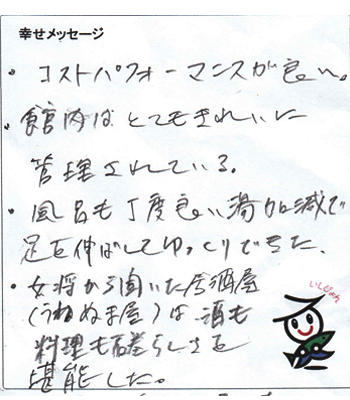 幸せメッセージ
・コストパフォーマンスが良い。
・館内はとてもきれいに
管理されている。
・風呂も丁度良い湯加減で
足を伸ばしてゆっくりできた。
・女将から聞いた居酒屋
(うねぬま屋)は酒も
料理も素晴らしさを
堪能した。